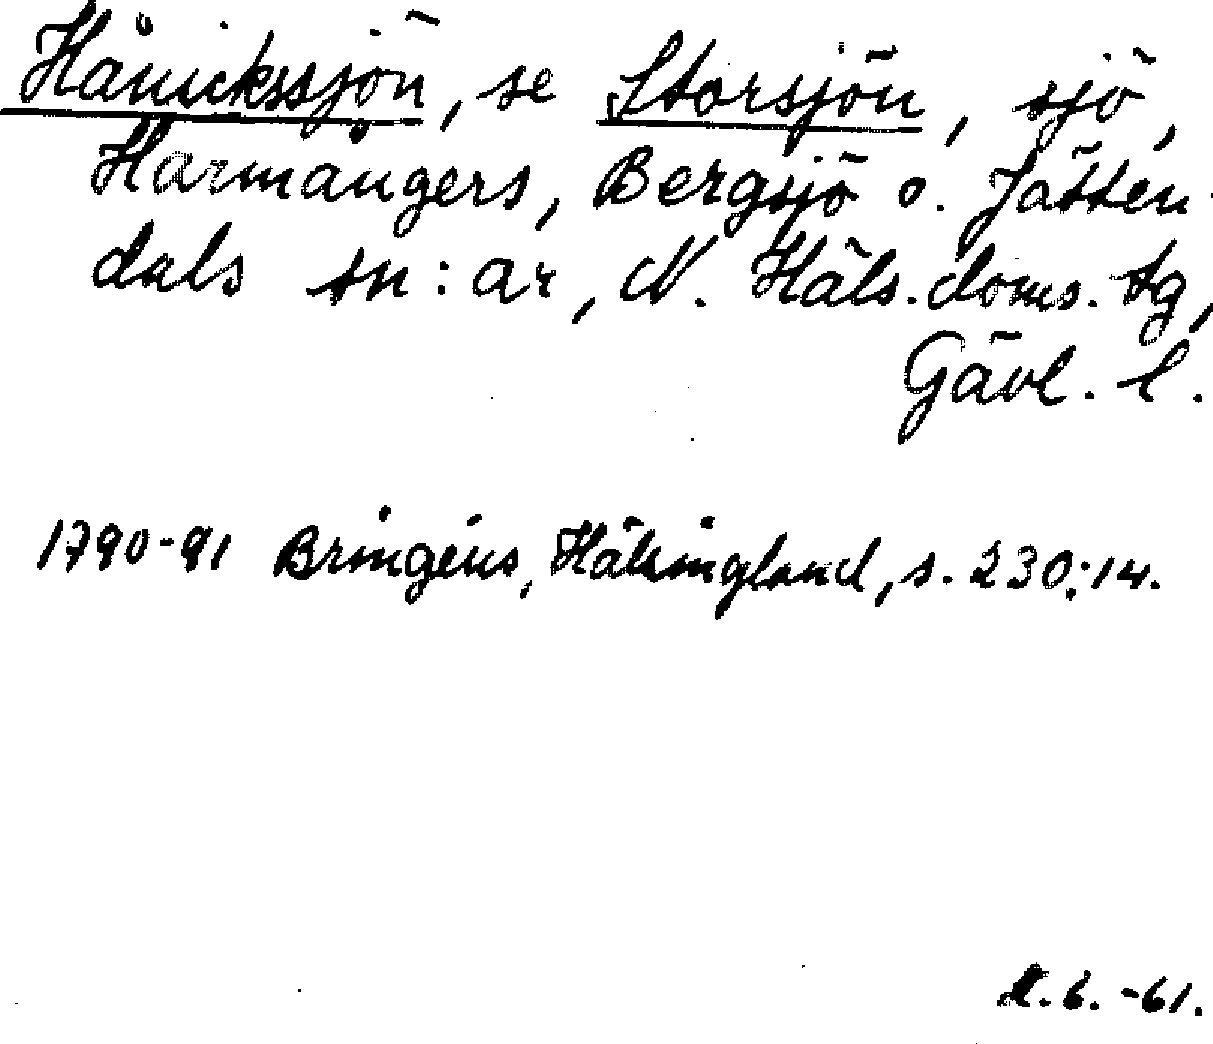 Hånickssjön, se Storsjön, sjö,
Harmångers, Bergsjö o. Jätten-
dals sn:ar, N. Häls. doms. tg,
Gävl. l.
1790-91 Bringéus, Hälsingland, s. 230:14.
6. -61.